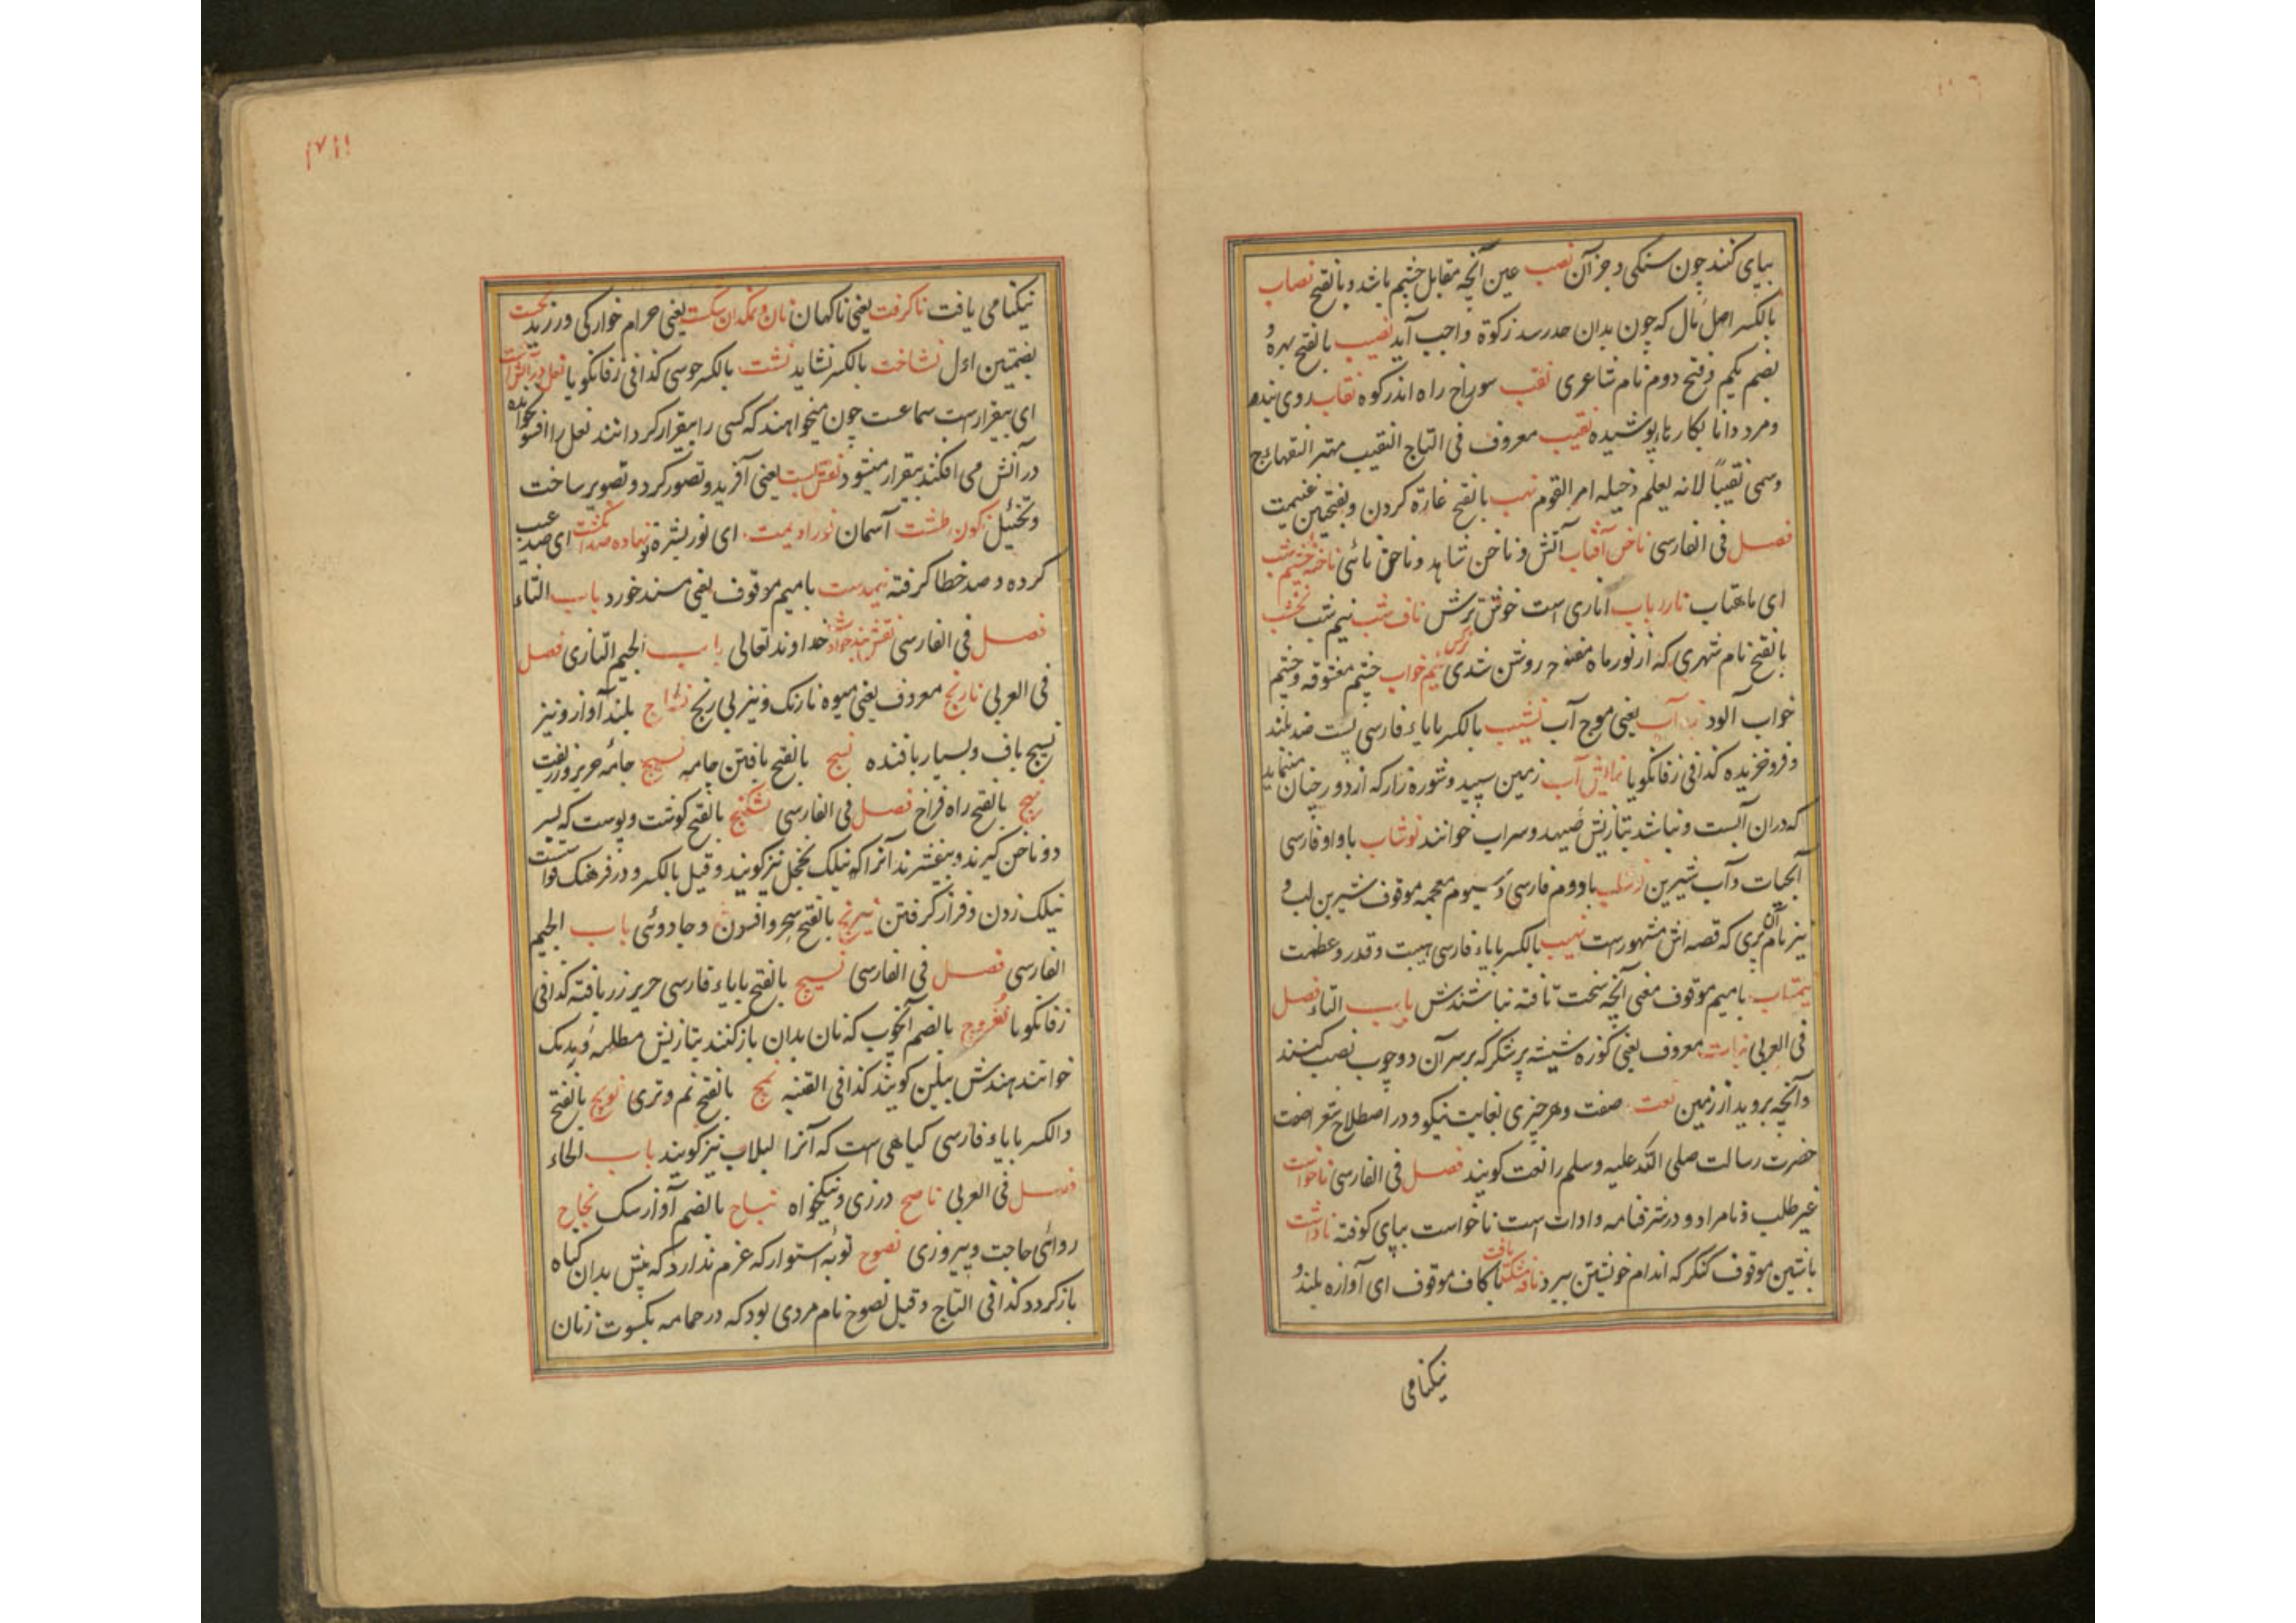 بپای کنند چون سنگی و جز آن نصب عین آنچه مقابل چشم باشد و بالفتح نصاب
بالکسر اصل مال که چون بدان حد رسد زکوة واجب آید نصیب بالفتح بهره و
بضم یکم و فتح دوم نام شاعری نقب سوراخ راه اندر کوه نقاب روی بند
و مرد دانا بکارها پوشیده نقیب معروف فی التاج النقیب مهتر
وسمی نقیبًا لانه یعلم دخیله امر القوم نهب بالفتح غارة کردن و بفتحتین غنیمت
فصل فی الفارسی ناخن آفتاب آتش و ناخن شاهد و ناخن نائی ناخنه چشم شب
ای ماهتاب نارداب اناری است خوش ترش ناف شب نیم شب نخشب
بالفتح نام شهری که از نور ماه مقنع روشن شدی نرگس نیم خواب چشم معشوقه و چشم
خواب آلود آب یعنی موج آب نشیب بالکسر با یاء فارسی پست ضد بلند
و فرو خزیده کذا فی زفانگویا نمایش آب زمین سپید و شوره زار که از دور چنان مینماید
که در آن آبست و نباشد بتازیش صیهد و سراب خوانند نوشاب با واو فارسی
آبحیات و آب شیرین نوشلب با دوم فارسی و سیوم معجمه موقوف شیرین لب و
نیز نام آن پری که قصه اش مشهورست نهیب بالکسر با یاء فارسی هیبت و قدر و عظمت
نیمتاب با میم موقوف معنی آنچه سخت تافته نباشندش باب التاء فصل
فی العربی نبات معروف یعنی کوزه شیشه پر شکر که بر سر آن دو چوب نصب کنند
و آنچه بروید از زمین نعت صفت و هر چیزی بغایت نیکو و در اصطلاح شعرا صفت
حضرت رسالت صلی الله علیه وسلم را نعت گویند فصل فی الفارسی ناخواست
غیر طلب و نامراد و در شرفنامه و ادات است ناخواست بپای کوفته ناداشت
با شین موقوف کنگر که اندام خویشتن ببرد یافت با کاف موقوف ای آوازه بلند و
نیکنامی
۱۷۱۱
نیکنامی یافت ناگرفت یعنی ناگهان نان و نمکدان شکست یعنی حرام خوارگی ورزید نخست
بضمتین اول نشاخت بالکسر نشاید نشت بالکسر جوسی کذا فی زفانگویا نعل در آتش است
ای بیقرارست سماعست چون میخواهند که کسی را بیقرار گردانند نعل را افسون خوانده
در آتش می افکند بیقرار میشود نقش بست یعنی آفرید و تصور کرد و تصویر ساخت
و تخئیل نگون طشت آسمان نور ادیمت ای نور بشره تو نهاده صد انگشت ای صد عیب
کرده و صد خطا گرفته نیمدست با میم موقوف یعنی مسند خورد باب الثاء
فصل فی الفارسی نقش بند حوادث خداوند تعالی باب الجیم التازی فصل
فی العربی نارنج معروف یعنی میوه نارنگ و نیز بی رنج نساج بلند آواز و نیز
نسیج باف و بسیار بافنده نسج بالفتح بافتن جامه نسیج جامه حریر و زربفت
نهج بالفتح راه فراخ فصل فی الفارسی نشکنج بالفتح گوشت و پوست که بسر
دو ناخن گیرند و بیفشرند آنرا که نیلک نخجل نیز گویند و قیل بالکسر و در فرهنگ قواست
نیلک زدن و فراز گرفتن نیرنج بالفتح سحر و افسون و جادوئی باب الجیم
الفارسی فصل فی الفارسی نسیج بالفتح با یاء فارسی حریر زر بافته کذا فی
زفانگویا نغروج بالضم آنچوب که نان بدان باز کنند بتازیش مطلمه و بدنک
خوانند هندش بیلن گویند کذا فی القنیه نمج بالفتح نم و تری نوپج بالفتح
و الکسر با یاء فارسی گیاهی است که آنرا لبلاب نیز گویند باب الحاء
فصل فی العربی ناصح درزی و نیکخواه نباح بالضم آواز سگ نجاح
روائی حاجت و پیروزی نصوح توبه استوار که عزم ندارد که پیش بدان گناه
باز گردد کذا فی التاج و قیل نصوح نام مردی بود که در حمامه بکسوت زنان